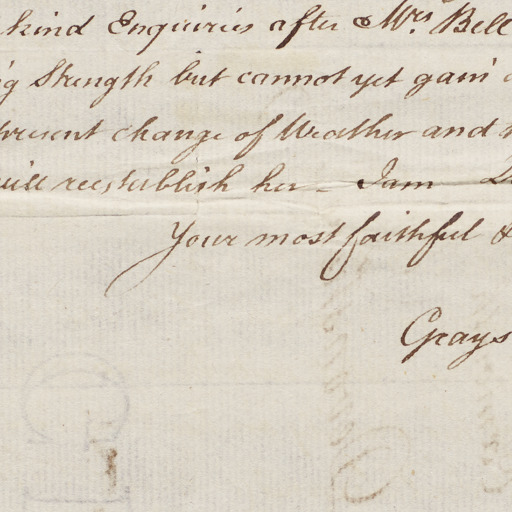 kind Enquiries after Mrs. Bell
g Strength but cannot yet gain
present change of Weather and
will reestablish her - I am D
Your most faithful &
Grays